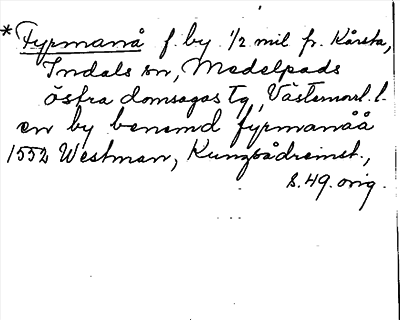 * Fyrmanå f. by 1/2 mil fr. Kårsta,
Indals sn, Medelpads
östra domsagas tg, Västernorrl. l.
en by benemd fyrmanåå
1552 Westman, Kungsådreinst.,
s. 49. orig.